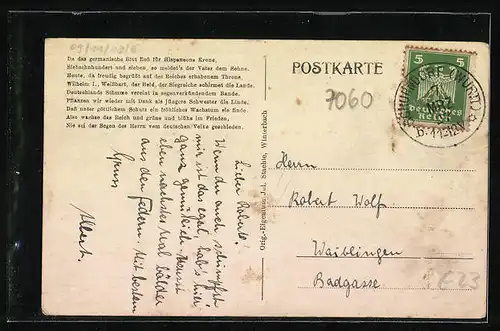 09/11/02/6
Da das germanische Blut floß für Hispaniens Krone,
Siebzehnhundert und sieben, so meldet's der Vater dem Sohne.
Heute, da freudig begrüßt auf des Reiches erhabenem Throne
Wilhelm I., Weißbart, der Held, der Siegreiche schirmet die Lande.
Deutschlands Stämme vereint in segenverkündendem Bande.
Pflanzen wir wieder mit Dank als jüngere Schwester die Linde,
Daß unter göttlichem Schutz ein fröhliches Wachstum sie finde.
Also wachse das Reich und grüne und blühe im Frieden,
Nie sei der Segen des Herrn vom deutschen Volke geschieden.
POSTKARTE
7060
5 5
Deutsches
Reich
6.11.
Lieber Robert!
Wenn du auch schimpfst
mir ist das egal, hab's hier
ganz gemütlich. Mußt
eben nächstes Mal bälder
aus den Federn. Mit besten
Gruss
Albert.
Orig.-Eigentum J. L. Stächle, Winterbach
Herrn
Robert Wolf
Waiblingen
Badgasse
E23